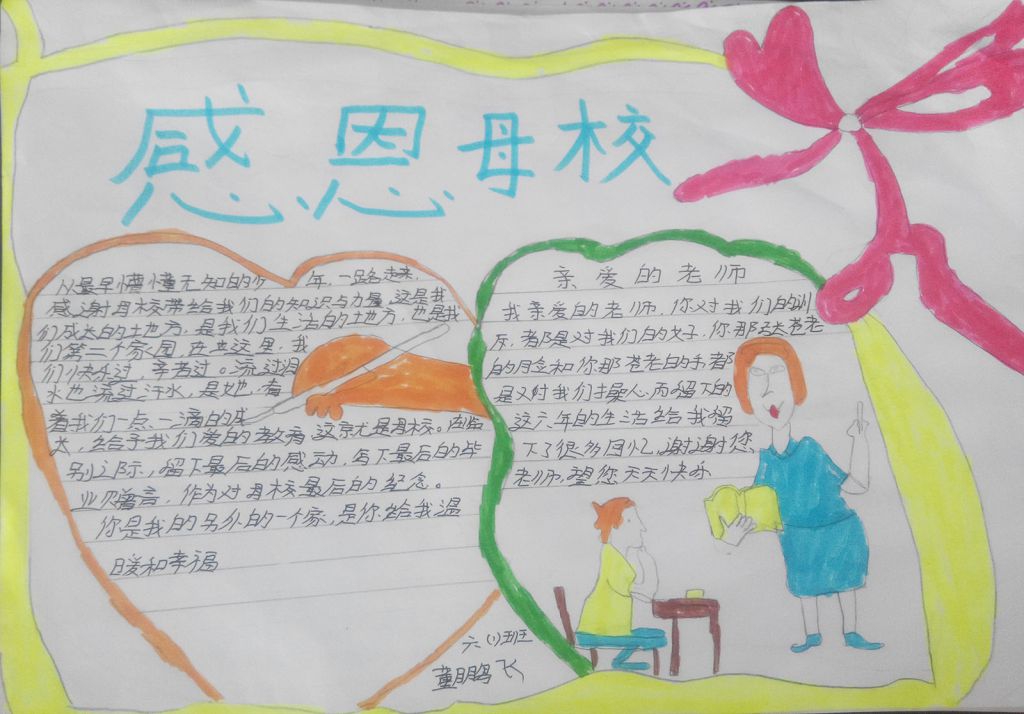 感恩母校
从最早懵懂无知的少年,一路走来,
感谢母校带给我们的知识与力量。这是我
们成长的土地方,是我们生活的土地方,也是我
们第二个家园,在这里,我
们快乐过,辛苦过。流过泪
水也流过汗水,是她,看
着我们一点、一滴的成
长,给予我们爱的教育,这就是母校。
别之际,留下最后的感动,写下最后的毕
业贝留言,作为对母校最后的纪念。
你是我的另外的一个家,是你给我温
暖和幸福
亲爱的老师
我亲爱的老师,你对我们的训
斥,都是对我们的关子,你那苍老
的月念和你那苍老的手都
是对我们操心而留下的
这六年的生活给我留
下了很多回忆,谢谢您,
老师,望您天天快乐
六(1)班
董鹏飞